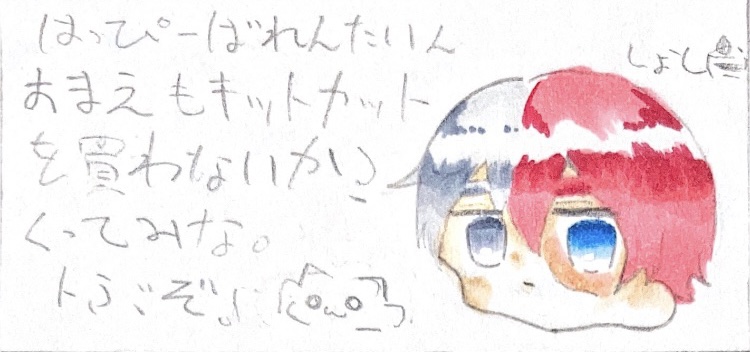 はっぴーばれんたいん
おまえもキットカット
を買わないかに
くってみな。
トぶぞ。
しょし